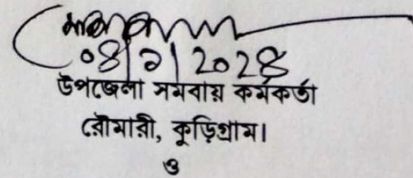 ০৪/৯/২০২৪
উপজেলা সমবায় কর্মকর্তা
রৌমারী, কুড়িগ্রাম।
ও